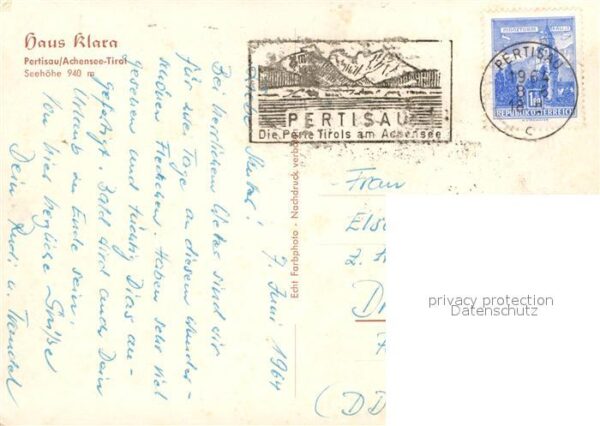 Haus Klara
Pertisau/Achensee-Tirol
Seehöhe 940 m
PERTISAU
Die Perle Tirols am Achensee
PERTISAU
1964
REPUBLIK ÖSTERREICH
Echt Farbphoto - Nachdruck verboten
7. Juni 1964
Bei herrlichem Wetter sind wir
für zwei Tage an diesem wunder-
schönen Fleckchen. Haben sehr viel
gesehen und tüchtig Dias an-
gefertigt. Bald wird auch Dein
Urlaub zu Ende sein.
Viele liebe herzliche Grüße
Dein Rudi u.
Frau
Else
D
(DD
privacy protection
Datenschutz